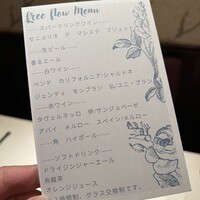 Free flow Menu
----スパークリングワイン----
セニョリオ デ マレステ ブリュット
----生ビール----
香るエール
----白ワイン----
ベンド カリフォルニア/シャルドネ
ジェンティ モンブラン 仏/ユニ・ブラン
----赤ワイン----
タヴェルネッロ 伊/サンジョベーゼ
アバイ メルロー スペイン/メルロー
----角 ハイボール----
----ソフトドリンク----
ドライジンジャーエール
烏龍茶
オレンジジュース
時間制、グラス交換制です。